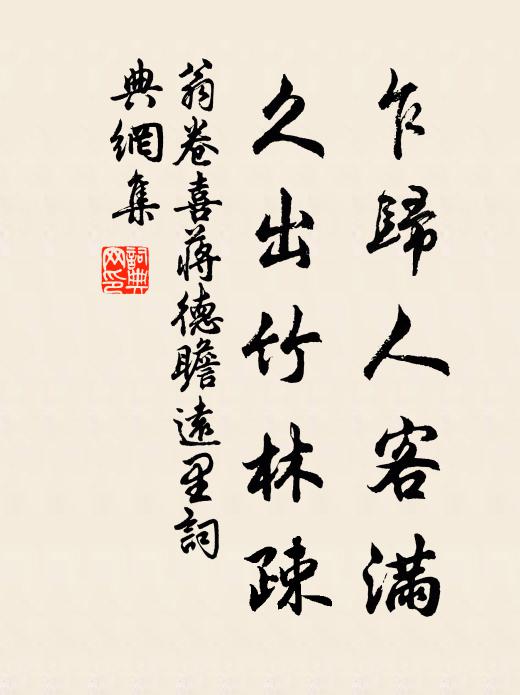 乍歸人客滿
久出竹林疎
翁卷喜蔣德瞻遠里詞
典網集
詞典網印